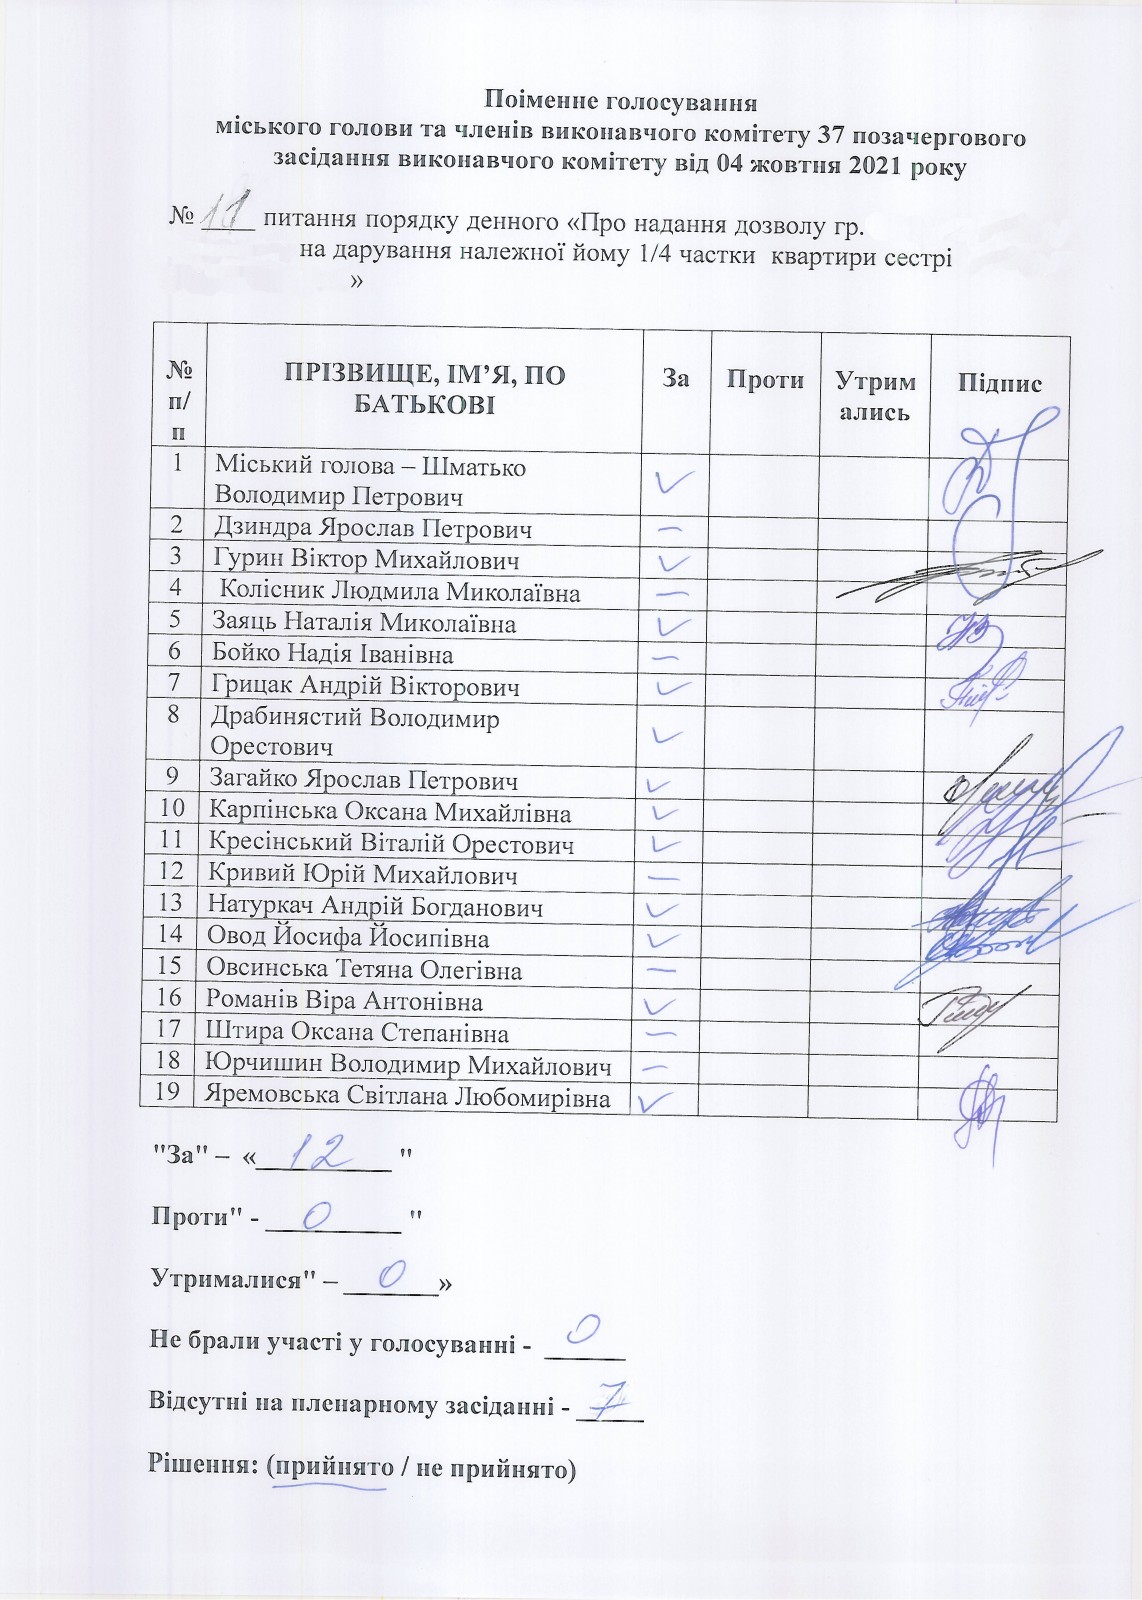 Поіменне голосування
міського голови та членів виконавчого комітету 37 позачергового
засідання виконавчого комітету від 04 жовтня 2021 року
№ 11 питання порядку денного «Про надання дозволу гр.
на дарування належної йому 1/4 частки квартири сестрі
»
№ п/п ПРІЗВИЩЕ, ІМ’Я, ПО БАТЬКОВІ За Проти Утримались Підпис
1 Міський голова – Шматько
Володимир Петрович ✓
2 Дзиндра Ярослав Петрович –
3 Гурин Віктор Михайлович ✓
4 Колісник Людмила Миколаївна –
5 Заяць Наталія Миколаївна ✓
6 Бойко Надія Іванівна –
7 Грицак Андрій Вікторович ✓
8 Драбинястий Володимир
Орестович ✓
9 Загайко Ярослав Петрович ✓
10 Карпінська Оксана Михайлівна ✓
11 Кресінський Віталій Орестович ✓
12 Кривий Юрій Михайлович –
13 Натуркач Андрій Богданович ✓
14 Овод Йосифа Йосипівна ✓
15 Овсинська Тетяна Олегівна –
16 Романів Віра Антонівна ✓
17 Штира Оксана Степанівна –
18 Юрчишин Володимир Михайлович –
19 Яремовська Світлана Любомирівна ✓
"За" – « 12 "
Проти" - 0 "
Утрималися" – 0 »
Не брали участі у голосуванні - 0
Відсутні на пленарному засіданні - 7
Рішення: (прийнято / не прийнято)